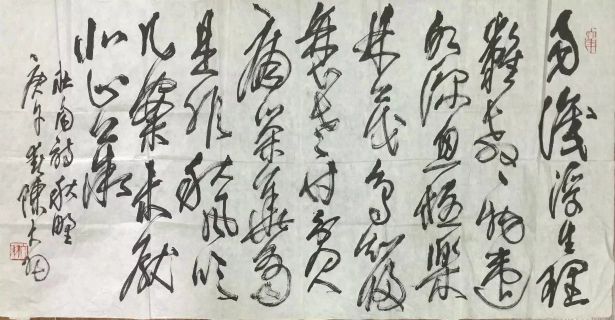 易識浮生理
難教一物違
水深魚極樂
林茂鳥知歸
老甘貧
病榮華有
是非秋風吹
几杖不厭
北山薇
杜甫詩秋野
庚午春陳大